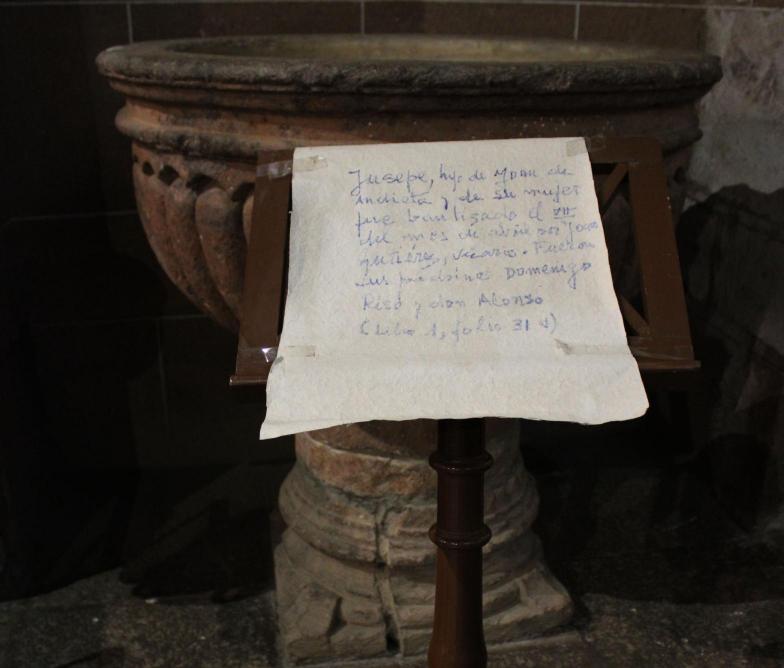 Jusepe, hijo de Joan de
indieta y de su mujer
fue bautizado el VII
del mes de abril por Joan
gutiérres, vicario. Fueron
sus padrinos Domenigo
Riso y don Alonso
(Libro 1, folio 31 v)